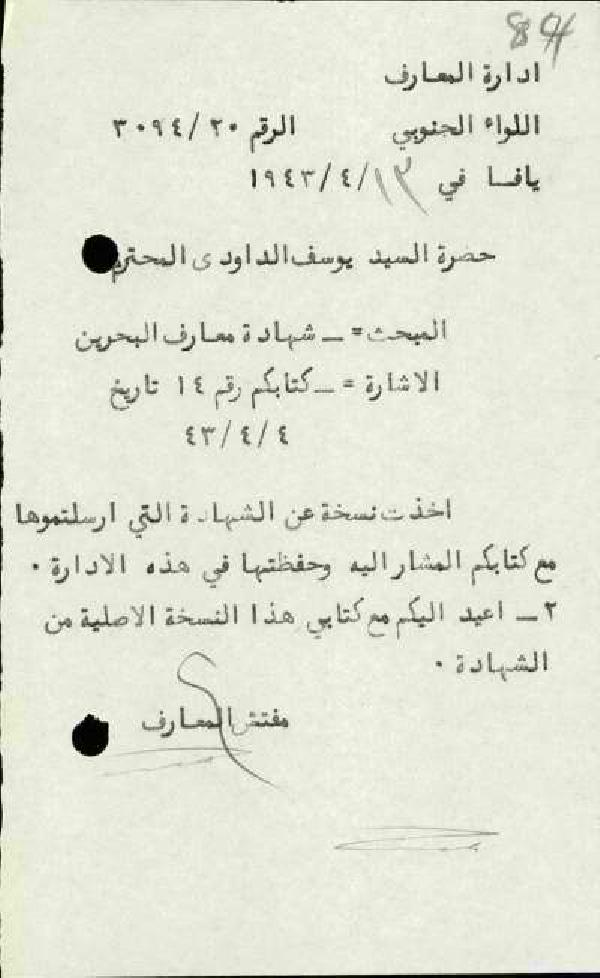 84
ادارة المعارف
اللواء الجنوبي الرقم ٢٠/ ٣٠٩٤
يافا في ١٣/ ٤/ ١٩٤٣
حضرة السيد يوسف الداودى المحترم
المبحث = ـ شهادة معارف البحرين
الاشارة = ـ كتابكم رقم ١٤ تاريخ
٤/ ٤/ ٤٣
اخذت نسخة عن الشهادة التي ارسلتموها
مع كتابكم المشار اليه وحفظتها في هذه الادارة ٠
٢ ـ اعيد اليكم مع كتابي هذا النسخة الاصلية من
الشهادة ٠
مفتش المعارف